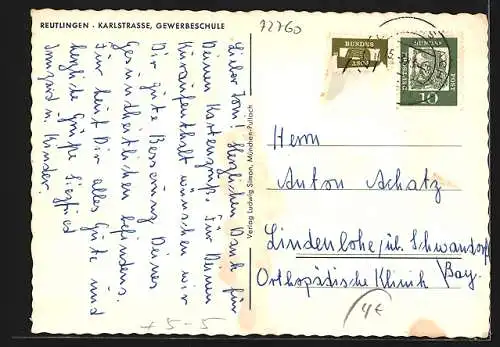 REUTLINGEN - KARLSTRASSE, GEWERBESCHULE
72760
Lieber Toni! Herzlichen Dank für
Deinen Kartengruß. Für Deinen
Kuraufenthalt wünschen wir
Dir gute Besserung Deines
Gesundheitlichen befindens.
Für heut Dir alles Gute und
herzliche Grüße Siegfried
Irmgard u. Kinder.
Verlag Ludwig Simon, München-Pullach
DEUTSCHE
BUNDESPOST
10
Herrn
Anton Achatz
Lindenlohe/üb. Schwandorf
Bay.
Orthopädische Klinik
4€
+ 5-5